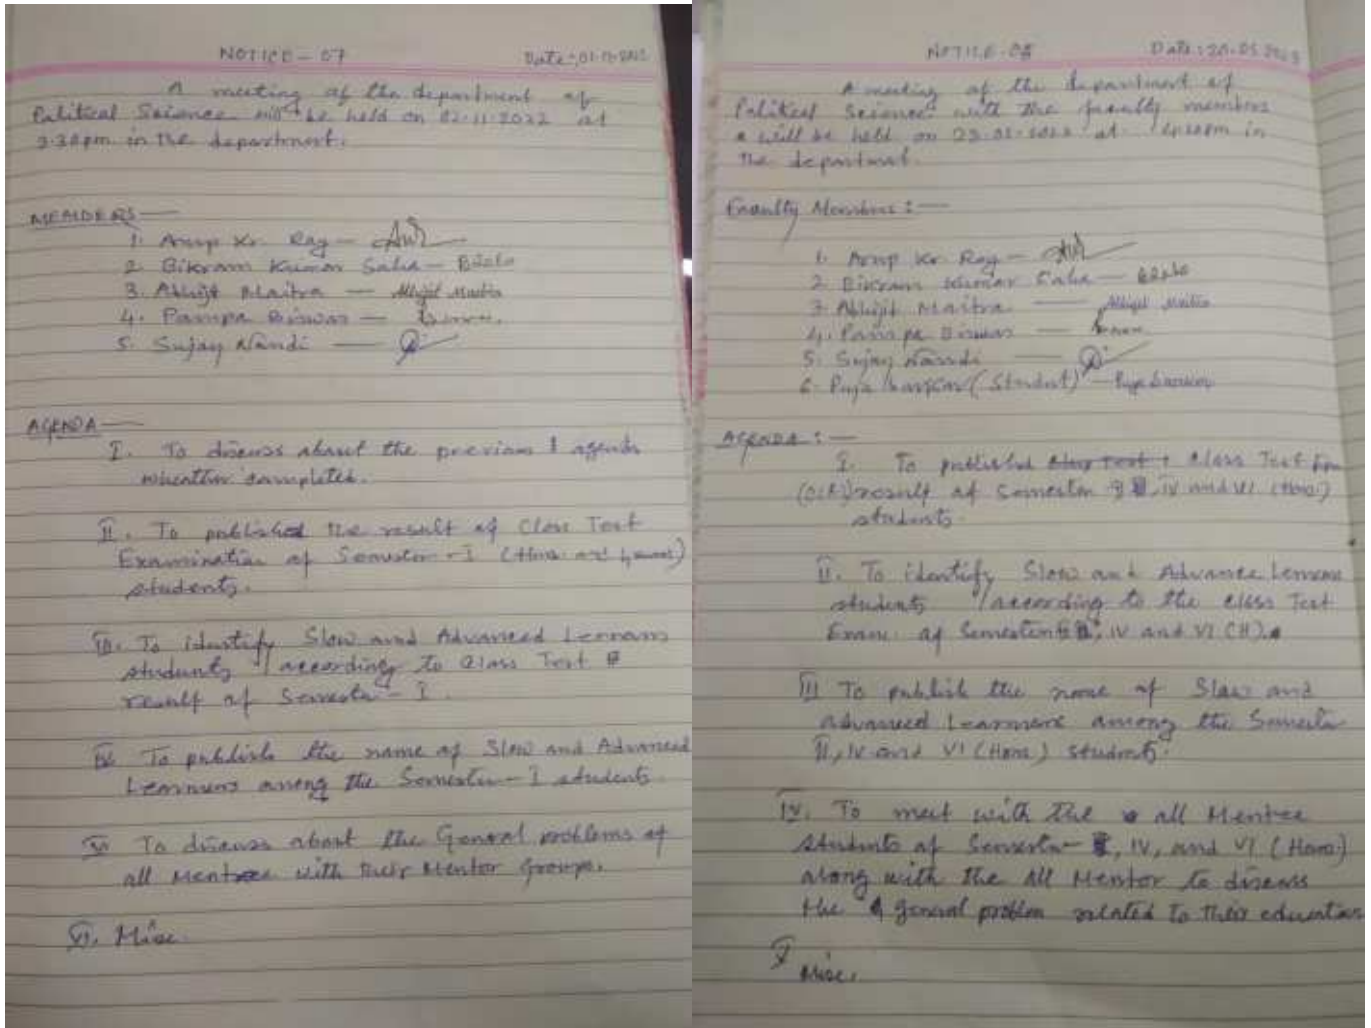 NOTICE - 07 Date:,01-11-2022
A meeting of the department of
Political Science will be held on 02-11-2022 at
3.30pm in the department.
MEMBERS —
1. Anup Kr. Ray —
2. Bikram Kumar Saha —
3. Abhijit Maitra — Abhijit Maitra
4. Pampa Biswas —
5. Sujay Nandi —
AGENDA —
I. To discuss about the previous agenda
wheather completed.
II. To published the result of Class Test
Examination of Semester - I (Hons and General)
students.
III. To identify Slow and Advanced Lernars
students according to Class Test
result of Semester - I.
IV. To publish the name of Slow and Advanced
Lernners among the Semester - I students.
V. To discuss about the General problems of
all Mentree with their Mentor Groups.
VI. Misc.
NOTICE - 08 Date:
A meeting of the department of
Political Science with the faculty members
will be held on at in
the department.
Faculty Members : —
1. Anup Kr Ray —
2. Bikram Kumar Saha —
3. Abhijit Maitra — Abhijit Maitra
4. Pampa Biswas —
5. Sujay Nandi —
6. Puja Sarkar (Student) — Puja Sarkar
AGENDA : —
I. To published Class Test Exm
result of Semester II, IV and VI (Hons)
students.
II. To identify Slow and Advance Lernners
students according to the Class Test
Exam. of Semester II, IV and VI (H).
III To publish the name of Slow and
advanced Learners among the Semester
II, IV and VI (Hons) students.
IV. To meet with the all Mentee
students of Semester - II, IV, and VI (Hons)
along with the all Mentor to discuss
the general problem related to their education
V Misc.